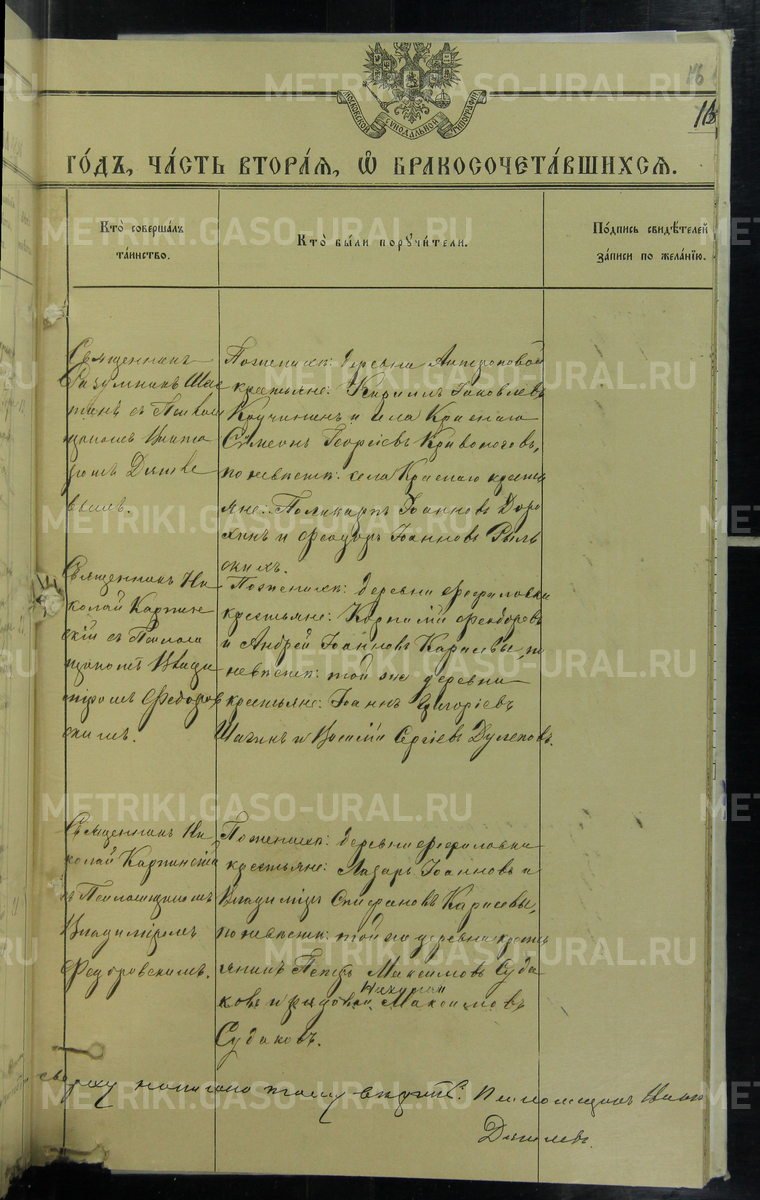 16
118
МОСКОВСКОЙ СѴНОДАЛЬНОЙ ТИПОГРАФІИ
ГО́ДЪ, ЧА́СТЬ ВТОРА́Я, Ѡ БРАКОСОЧЕТА́ВШИХСЯ.
Кто̀ соверша́лъ
та́инство.
Кто̀ бы́ли порꙋчи́тели.
По́дпись свидѣ́телей
за́писи по жела́нію.
Священникъ
Разумникъ
съ Псалом
щикомъ
Поженихѣ: деревни Антроповой
крестьяне: Кириллъ Іаковлевъ
Кручининъ и села Краснаго
Симеонъ Георгіевъ Кривоноговъ,
по невѣстѣ: села Краснаго крестья
яне: Поликарпъ Іоанновъ Доро
хинъ и Феодоръ Іоанновъ Рыль
скихъ.
Священникъ Ни
колай Карпин
скій съ Псалом
щикомъ Влади
міромъ Федоров
скимъ.
Поженихѣ: деревни Феофиловки
крестьяне: Феодоровъ
и Андрей Іоанновъ Карасевы, по
невѣстѣ: той же деревни
крестьяне: Іоаннъ Григоріевъ
и Василій Сергіевъ Дулеповъ.
Священникъ Ни
колай Карпинскій
съ Псаломщикомъ
Владиміромъ
Федоровскимъ.
Поженихѣ: деревни Феофиловки
крестьяне: Лазарь Іоанновъ и
Владиміръ Стефановъ Карасевы,
по невѣстѣ: той же деревни кресть
янинъ Петръ Максимовъ Суда
ковъ и рядовой Максимовъ
Судаковъ.
сверху написано Псаломщикъ
METRIKI.GASO-URAL.RU